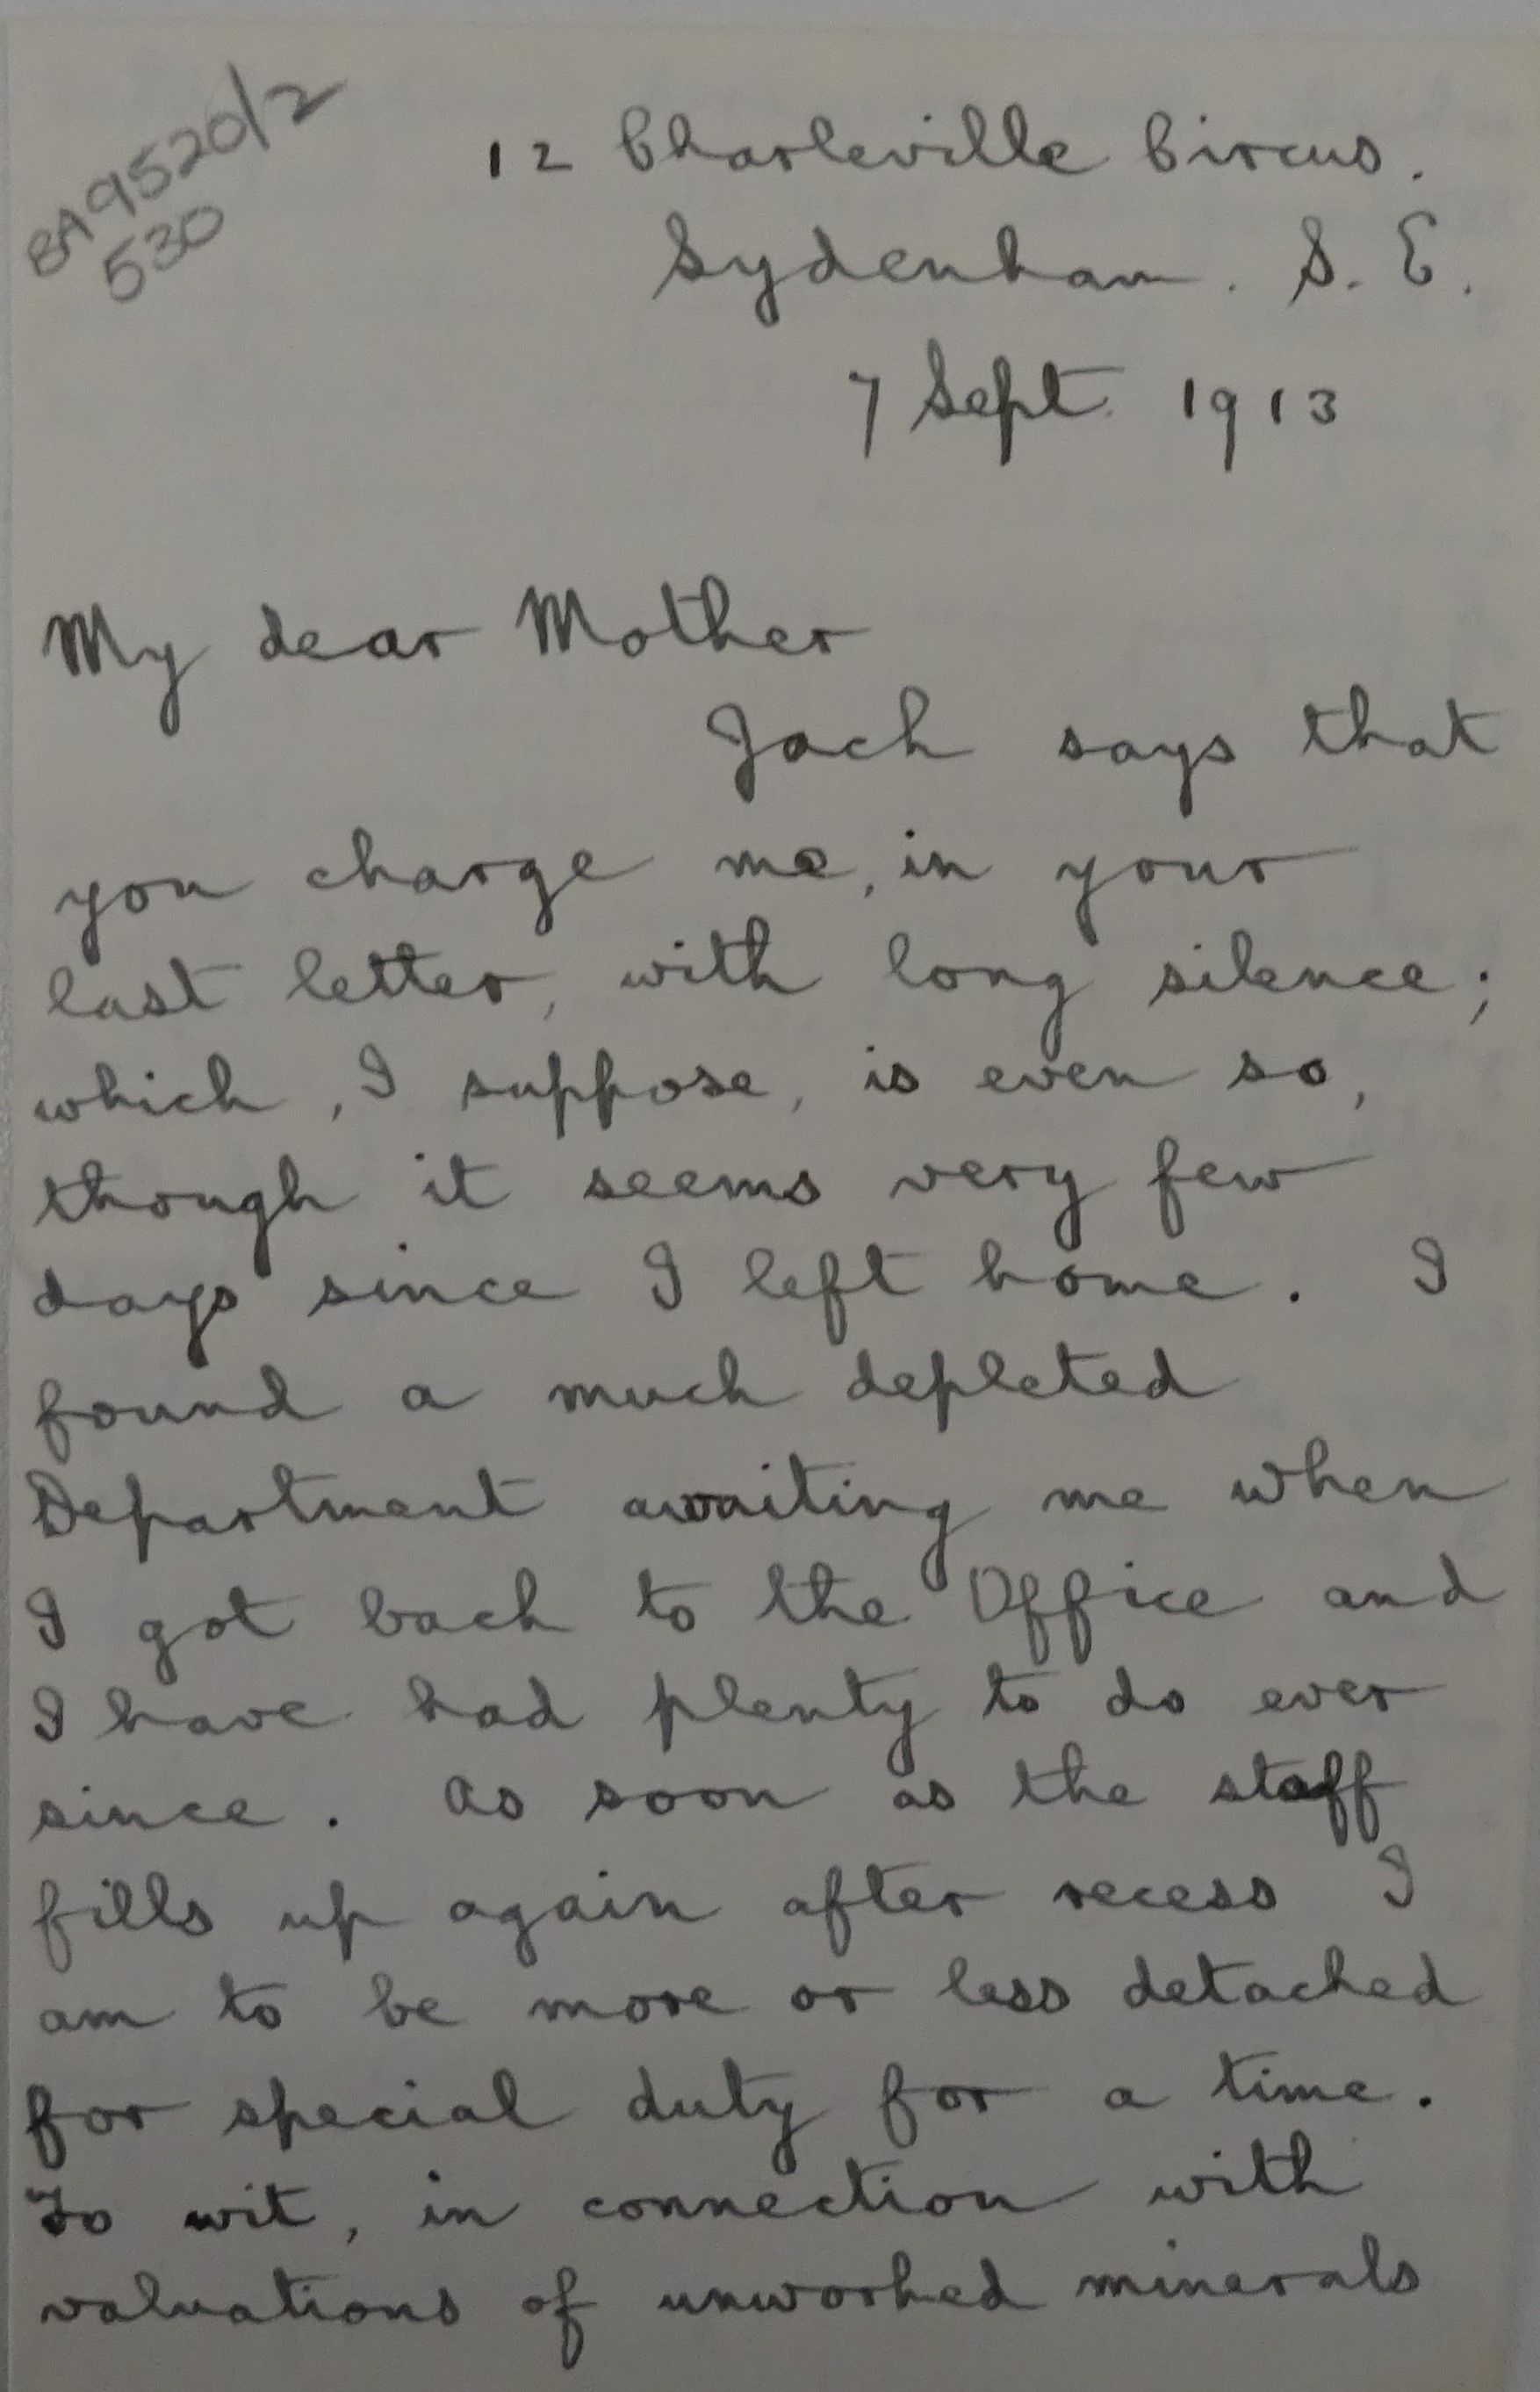 BA9520/2
530
12 Charleville Circus.
Sydenham. S. E.
7 Sept. 1913
My dear Mother
Jack says that
you charge me, in your
last letter, with long silence;
which, I suppose, is even so,
though it seems very few
days since I left home. I
found a much depleted
Department awaiting me when
I got back to the Office and
I have had plenty to do ever
since. As soon as the staff
fills up again after recess I
am to be more or less detached
for special duty for a time.
To wit, in connection with
valuations of unworked minerals